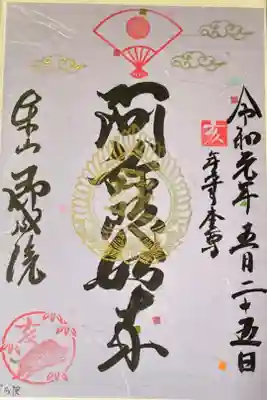 令和元年五月二十五日
亥
年守本尊
阿弥陀如来
泉山 即成院
亥